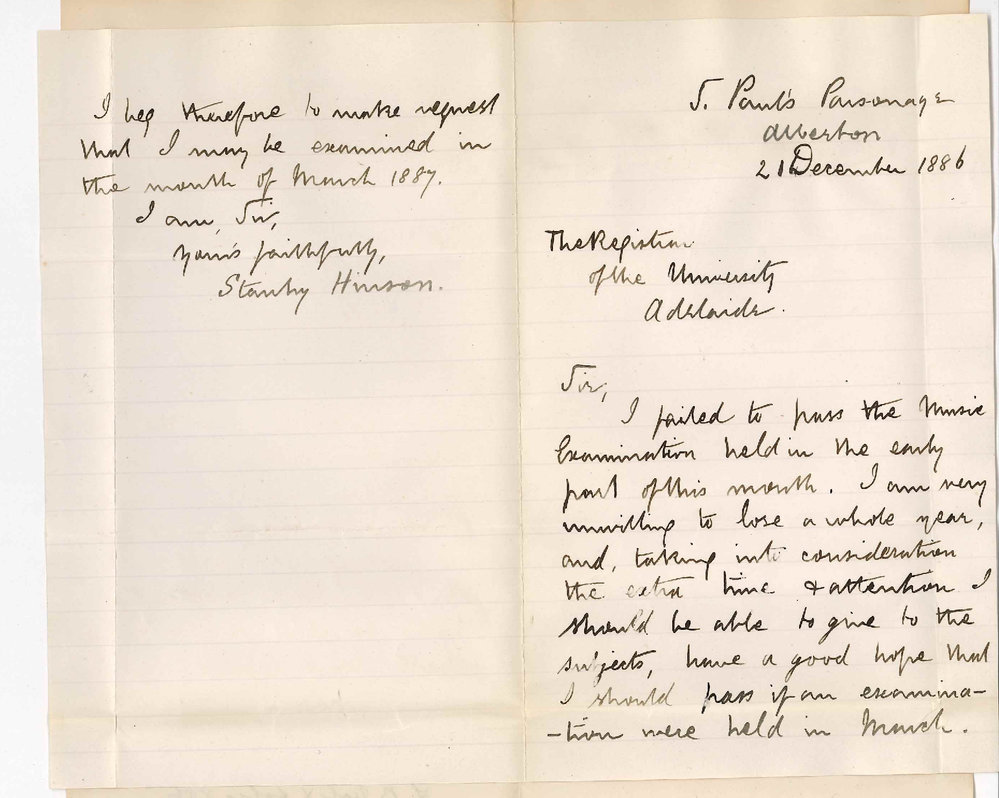 S. Paul's Parsonage
Alberton
21 December 1886
The Registrar
of the University
Adelaide.
Sir,
I failed to pass the Music
Examination held in the early
part of this month. I am very
unwilling to lose a whole year,
and, taking into consideration
the extra time & attention I
should be able to give to the
subjects, have a good hope that
I should pass if an examina-
-tion were held in March.
I beg therefore to make request
that I may be examined in
the month of March 1887.
I am, Sir,
Yours faithfully,
Stanley Hinson.